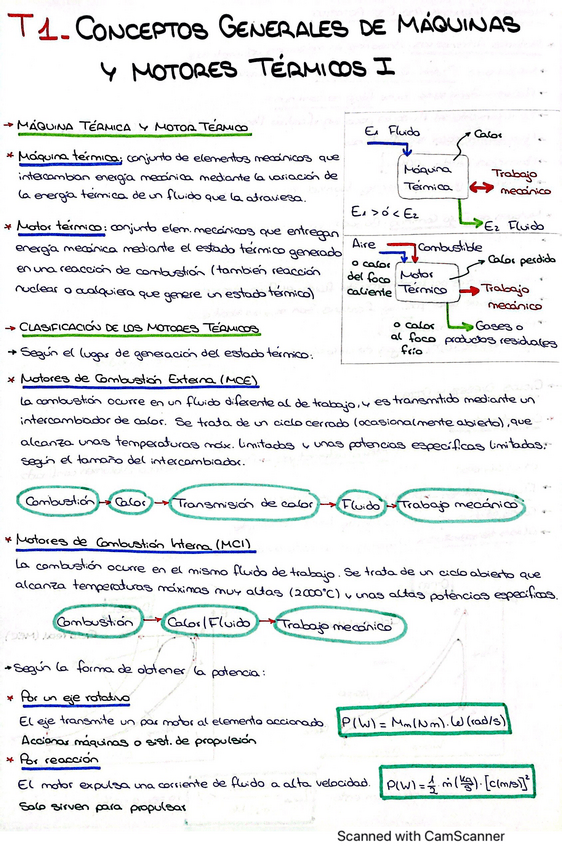 T1. CONCEPTOS GENERALES DE MÁQUINAS
Y MOTORES TÉRMICOS I
→ MÁQUINA TÉRMICA Y MOTOR TÉRMICO
* Máquina térmica: conjunto de elementos mecánicos que
intercambian energía mecánica mediante la variación de
la energía térmica de un fluido que la atraviesa.
* Motor térmico: conjunto elem. mecánicos que entregan
energía mecánica mediante el estado térmico generado
en una reacción de combustión (también reacción
nuclear o cualquiera que genere un estado térmico)
E1 Fluido
Calor
Máquina
Térmica
Trabajo
mecánico
E1 > ó < E2
E2 Fluido
Aire
Combustible
o calor
del foco
caliente
Motor
Térmico
Calor perdido
Trabajo
mecánico
o calor
al foco
frío
Gases o
productos residuales
→ CLASIFICACIÓN DE LOS MOTORES TÉRMICOS
→ Según el lugar de generación del estado térmico:
* Motores de Combustión Externa (MCE)
La combustión ocurre en un fluido diferente al de trabajo, y es transmitido mediante un
intercambiador de calor. Se trata de un ciclo cerrado (ocasionalmente abierto), que
alcanza unas temperaturas máx. limitadas y unas potencias específicas limitadas,
según el tamaño del intercambiador.
Combustión → Calor → Transmisión de calor → Fluido → Trabajo mecánico
* Motores de Combustión Interna (MCI)
La combustión ocurre en el mismo fluido de trabajo. Se trata de un ciclo abierto que
alcanza temperaturas máximas muy altas (2000°C) y unas altas potencias específicas.
Combustión → Calor/Fluido → Trabajo mecánico
→ Según la forma de obtener la potencia:
* Por un eje rotativo
El eje transmite un par motor al elemento accionado.
P(W) = Mm(Nm) · ω(rad/s)
Accionar máquinas o sist. de propulsión
* Por reacción
El motor expulsa una corriente de fluido a alta velocidad.
P(W) = 1/2 ṁ(kg/s) · [c(m/s)]²
Solo sirven para propulsar
Scanned with CamScanner